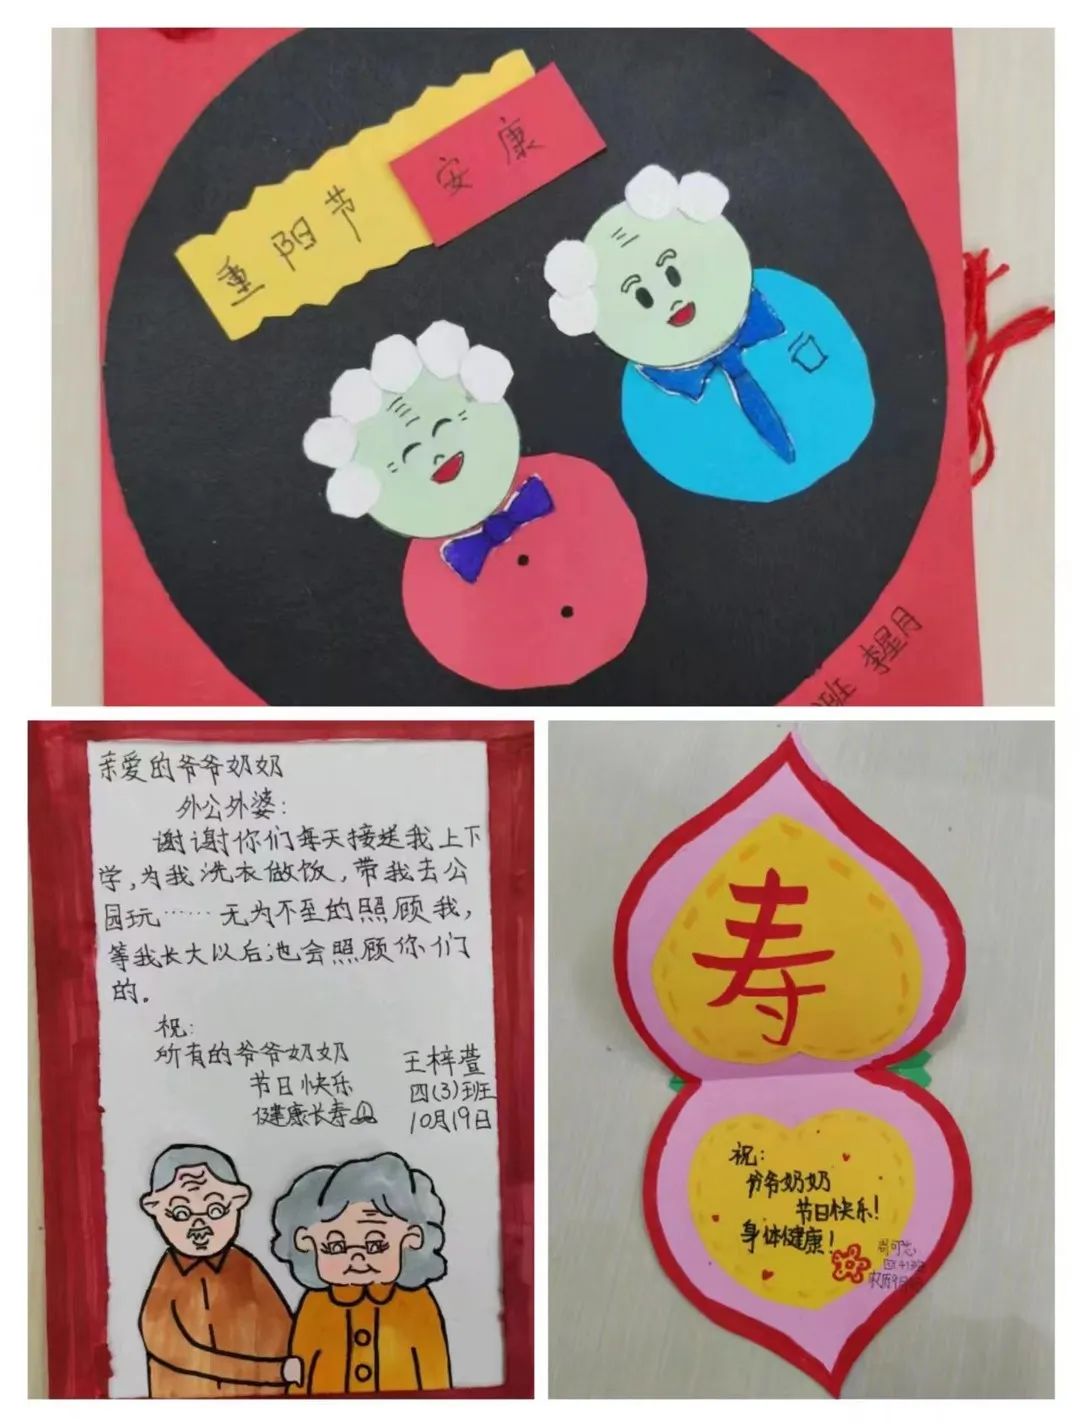 重阳节
安康
班 李星月
亲爱的爷爷奶奶
外公外婆：
谢谢你们每天接送我上下
学，为我洗衣做饭，带我去公
园玩……无为不至的照顾我，
等我长大以后，也会照顾你们
的。
祝：
所有的爷爷奶奶
节日快乐
健康长寿
王梓萱
四(3)班
10月19日
寿
祝：
爷爷奶奶
节日快乐！
身体健康！